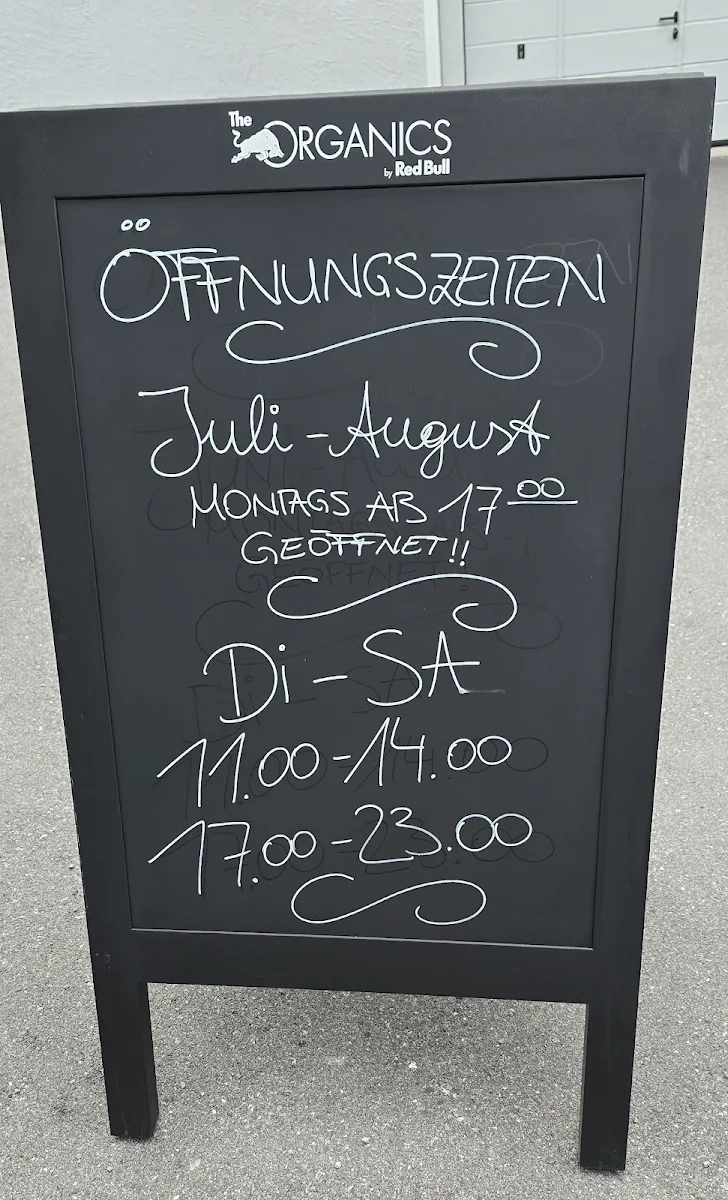 The
ORGANICS
by Red Bull
ÖFFNUNGSZEITEN
Juli - August
MONTAGS AB 17 00
GEÖFFNET!!
Di - SA
11.00 - 14.00
17.00 - 23.00